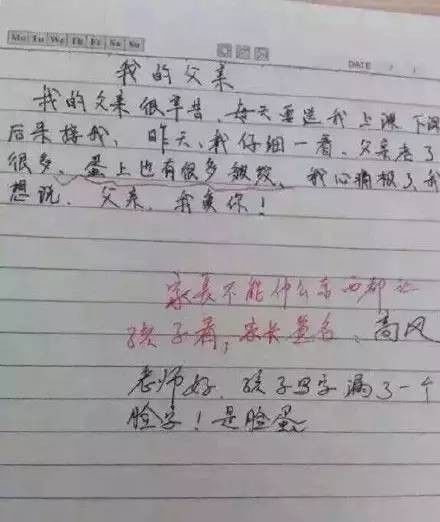 Mo Tu We Th Fr Sa Su
DATE / /
我的父亲
我的父亲很辛苦，每天要送我上课，下课
后来接我，昨天，我仔细一看，父亲老了
很多，蛋上也有很多皱纹，我心痛极了，我
想说，父亲，我爱你！
家长不能什么东西都让
孩子看，家长签名、高风
老师好，孩子写字漏了一个
脸字！是脸蛋